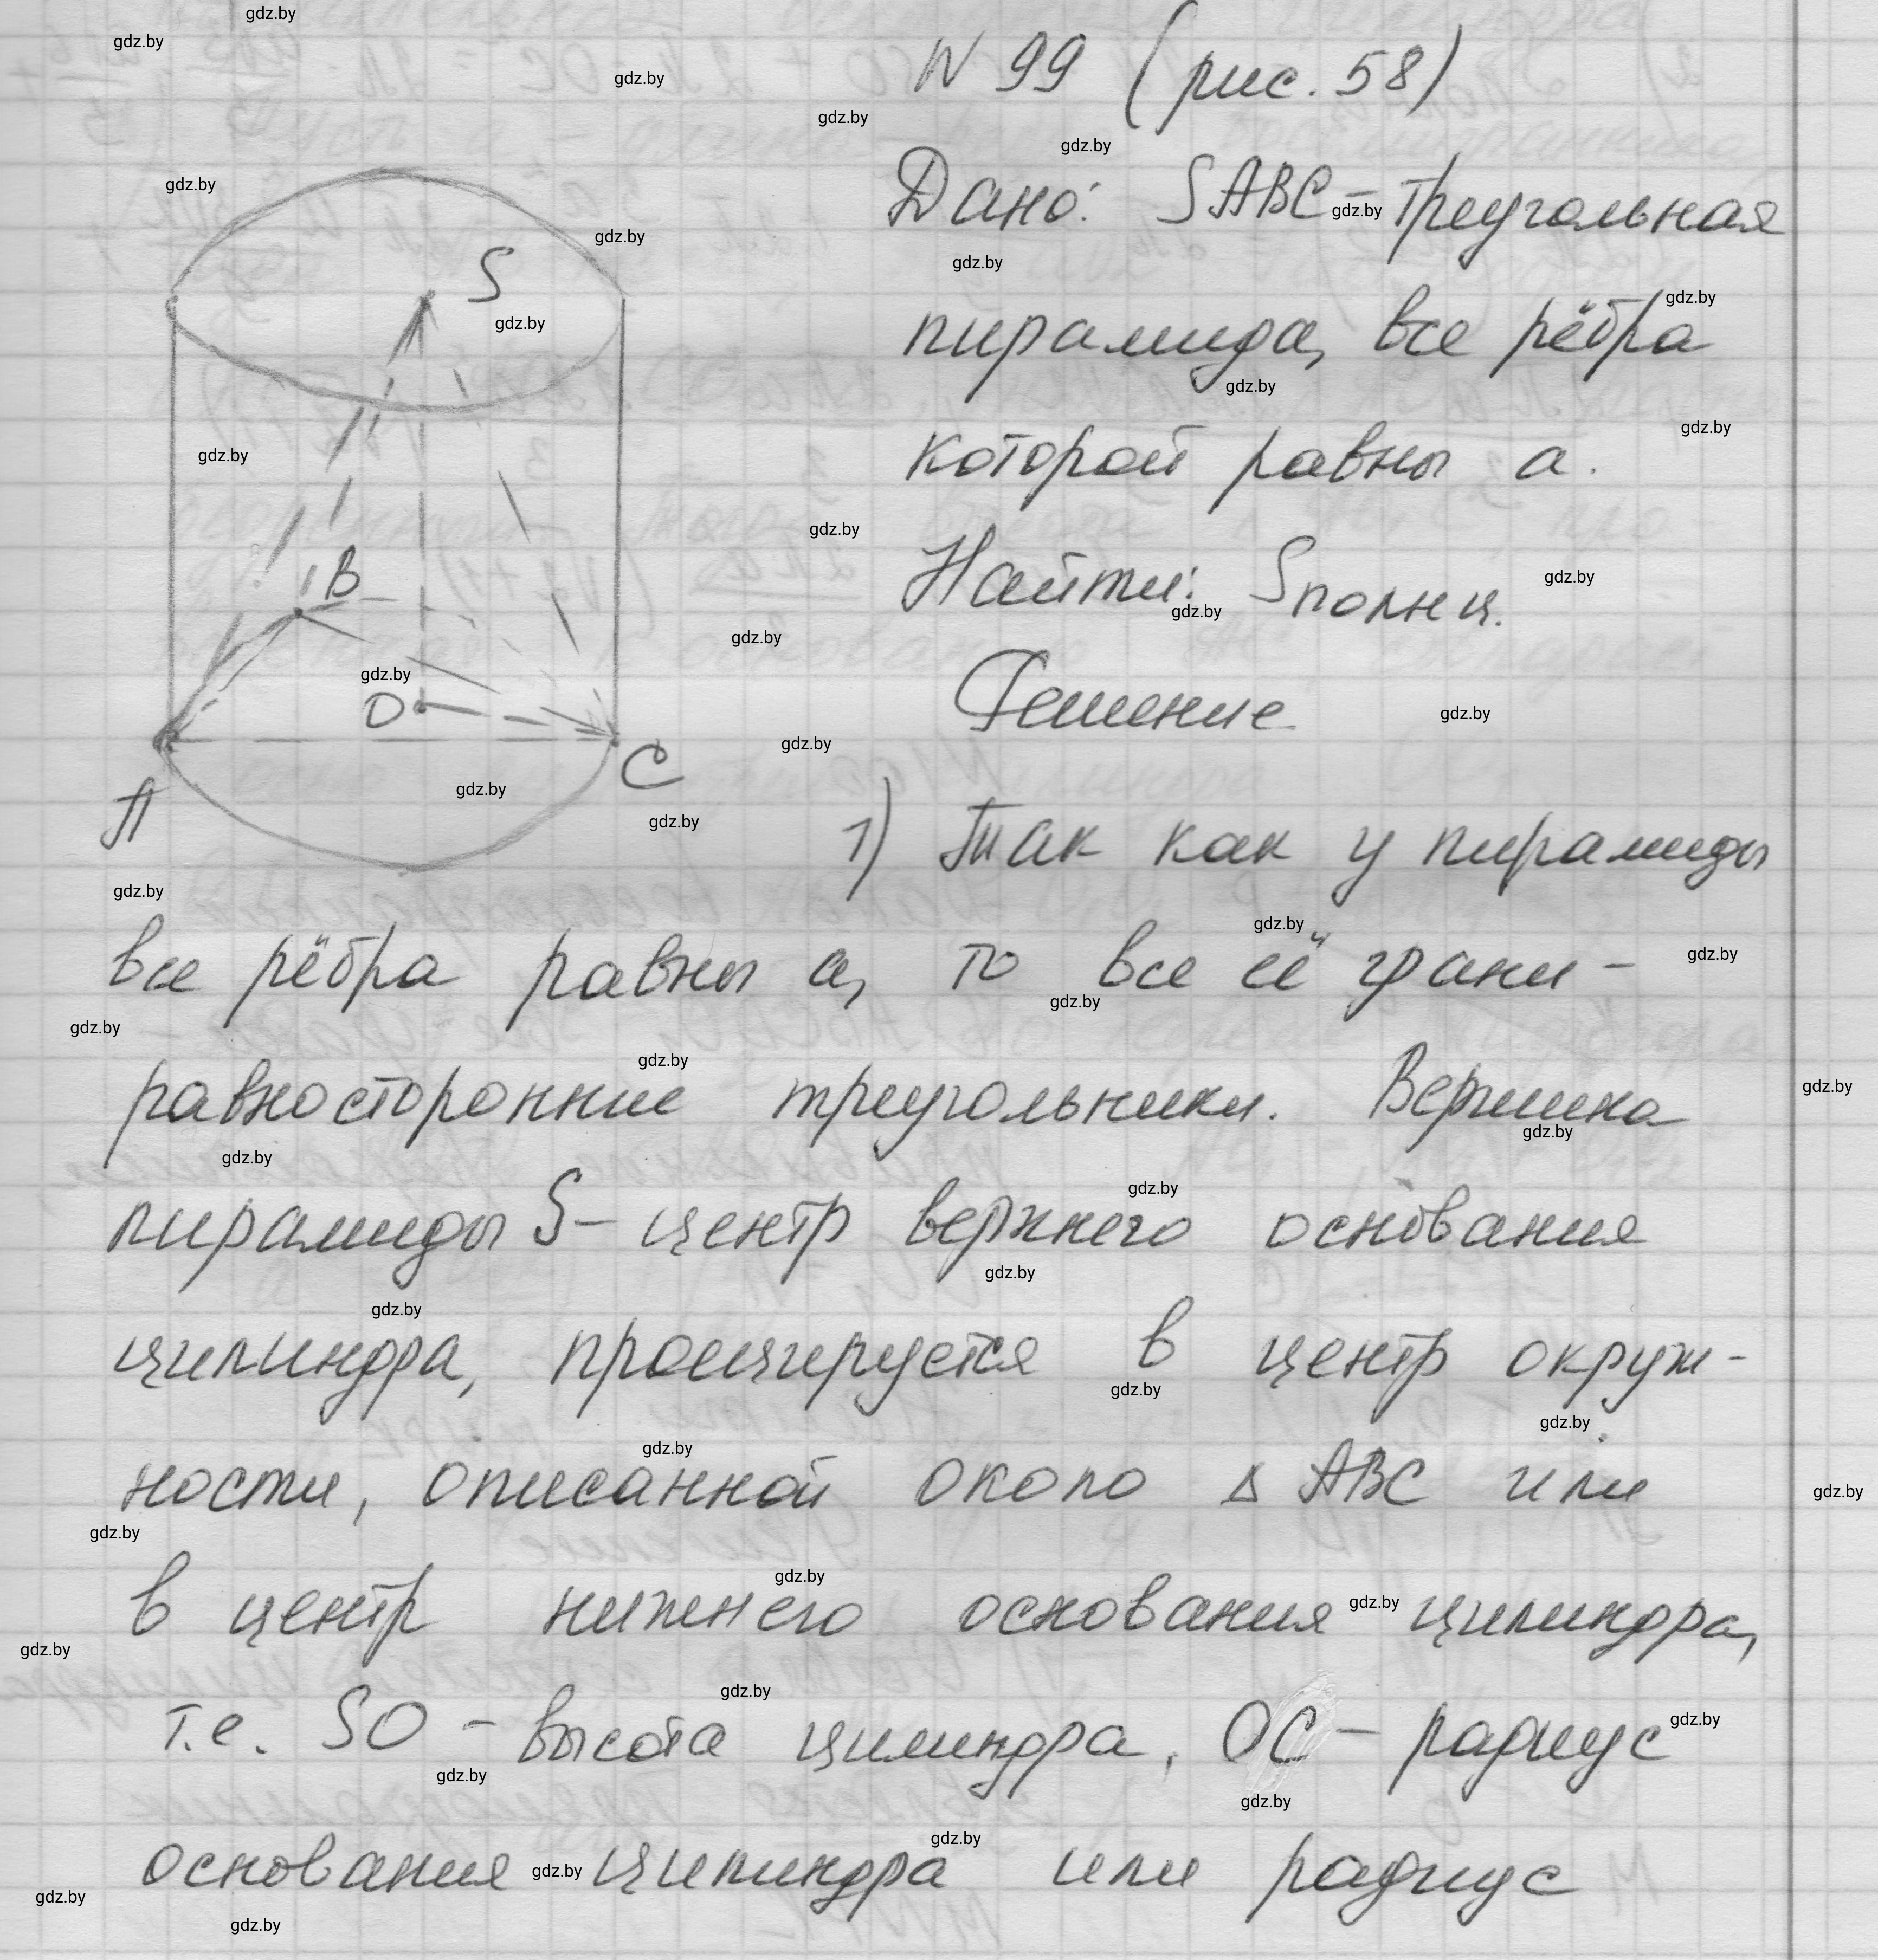 N 99 (рис. 58)
Дано: SABC - треугольная
пирамида, все рёбра
которой равны a.
Найти: Sполн ц.
Решение
S
B
O
A
C
1) Так как у пирамиды
все рёбра равны a, то все её грани -
равносторонние треугольники. Вершина
пирамиды S - центр верхнего основания
цилиндра, проецируется в центр окруж-
ности, описанной около Δ ABC или
в центр нижнего основания цилиндра,
т.е. SO - высота цилиндра, OC - радиус
основания цилиндра или радиус
gdz.by